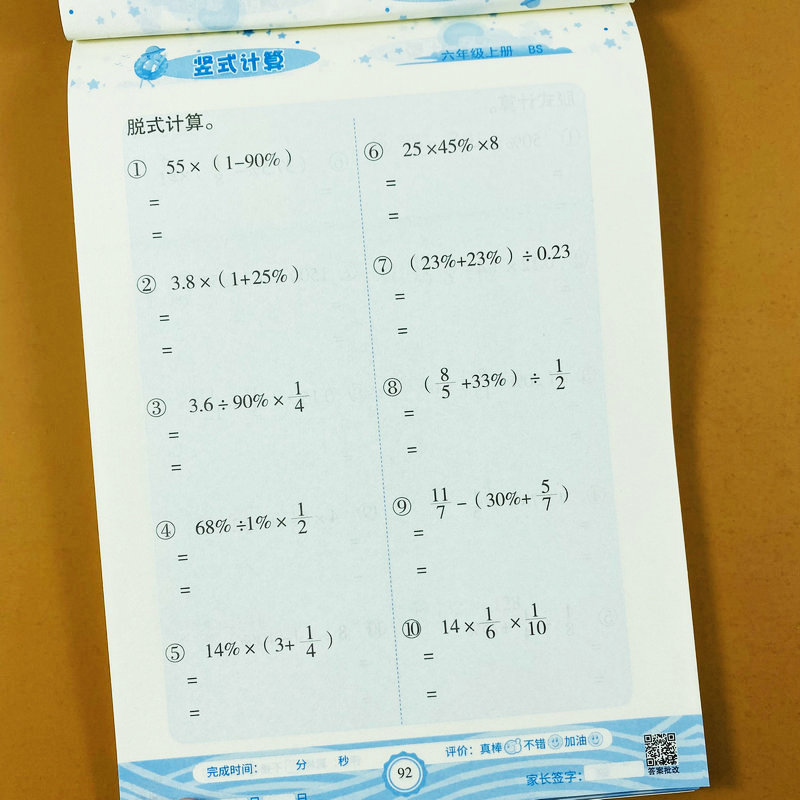 竖式计算
六年级上册 BS
脱式计算。
① 55×（1-90%）
=
=
② 3.8×（1+25%）
=
=
③ 3.6÷90%×1/4
=
=
④ 68%÷1%×1/2
=
=
⑤ 14%×（3+1/4）
=
=
⑥ 25×45%×8
=
=
⑦ （23%+23%）÷0.23
=
=
⑧ （8/5+33%）÷1/2
=
=
⑨ 11/7-（30%+5/7）
=
=
⑩ 14×1/6×1/10
=
=
完成时间： 分 秒
92
评价：真棒 不错 加油
家长签字：
答案批改
月 日